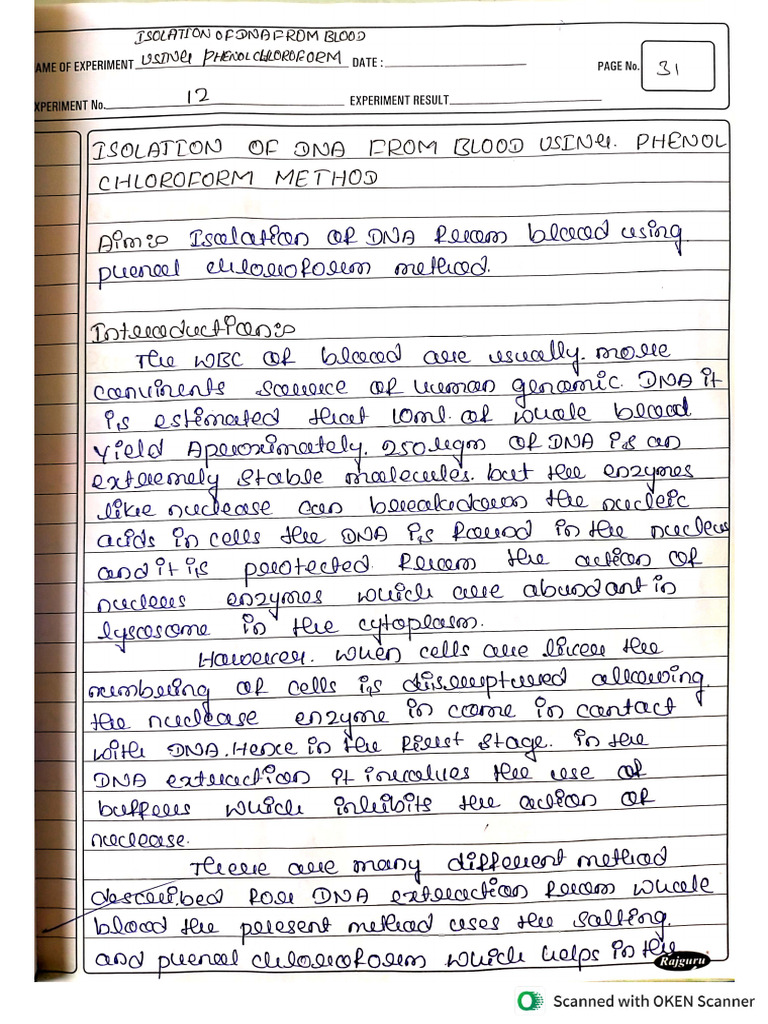 ISOLATION OF DNA FROM BLOOD
NAME OF EXPERIMENT USING PHENOL CHLOROFORM DATE :
PAGE No. 31
EXPERIMENT No. 12 EXPERIMENT RESULT
ISOLATION OF DNA FROM BLOOD USING. PHENOL
CHLOROFORM METHOD
Aim:- Isolation of DNA from blood using
phenol chloroform method.
Introduction:-
The WBC of blood are usually. more
convinents source of human genomic. DNA it
is estimated that 10ml. of whole blood
yield Aproximately. 250 ugm of DNA is an
extremely stable molecules. but the enzymes
like nuclease can breakdown the nucleic
acids in cells the DNA is found in the nucleus
and it is protected from the action of
nucleus enzymes which are abundant in
lysosome in the cytoplasm.
However. when cells are the
of cells is allowing.
the nuclease enzyme in come in contact
with DNA. Hence in the first stage. in the
DNA extraction it involves the use of
buffers which inhibits the action of
nuclease.
There are many different method
described for DNA extraction from whole
blood the present method uses the salting.
and phenol chloroform which helps in the
Rajguru
Scanned with OKEN Scanner